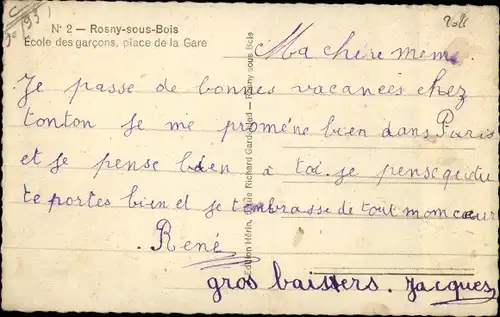 N° 2 — Rosny-sous-Bois
École des garçons, place de la Gare
Ma chère mem
Je passe de bonnes vacances chez
tonton je me promène bien dans Paris
et je pense bien à toi. je pense que du
te portes bien et je t'enbrasse de tout mon cœur
René
gros baisters. Jacques
Edition Hérin, Richard Gardebled — Rosny sous Bois